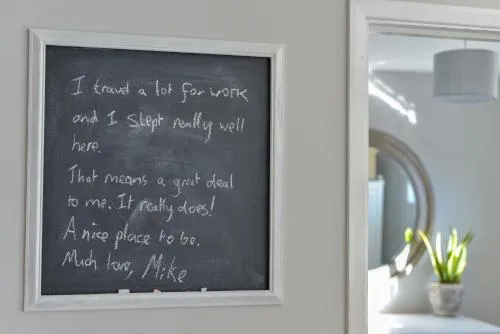 I travel a lot for work
and I slept really well
here.
That means a great deal
to me. It really does!
A nice place to be.
Much love, Mike